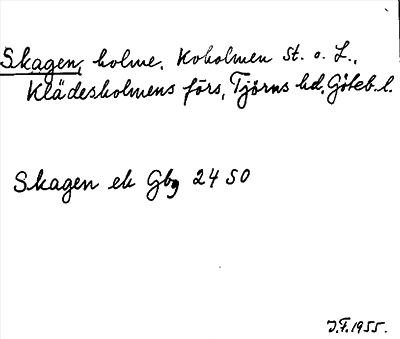 Skagen, holme. Koholmen St. o. L.,
Klädesholmens förs, Tjörns hd. Göteb. l.
Skagen ek Gbg 24 SO
J.F. 1955.